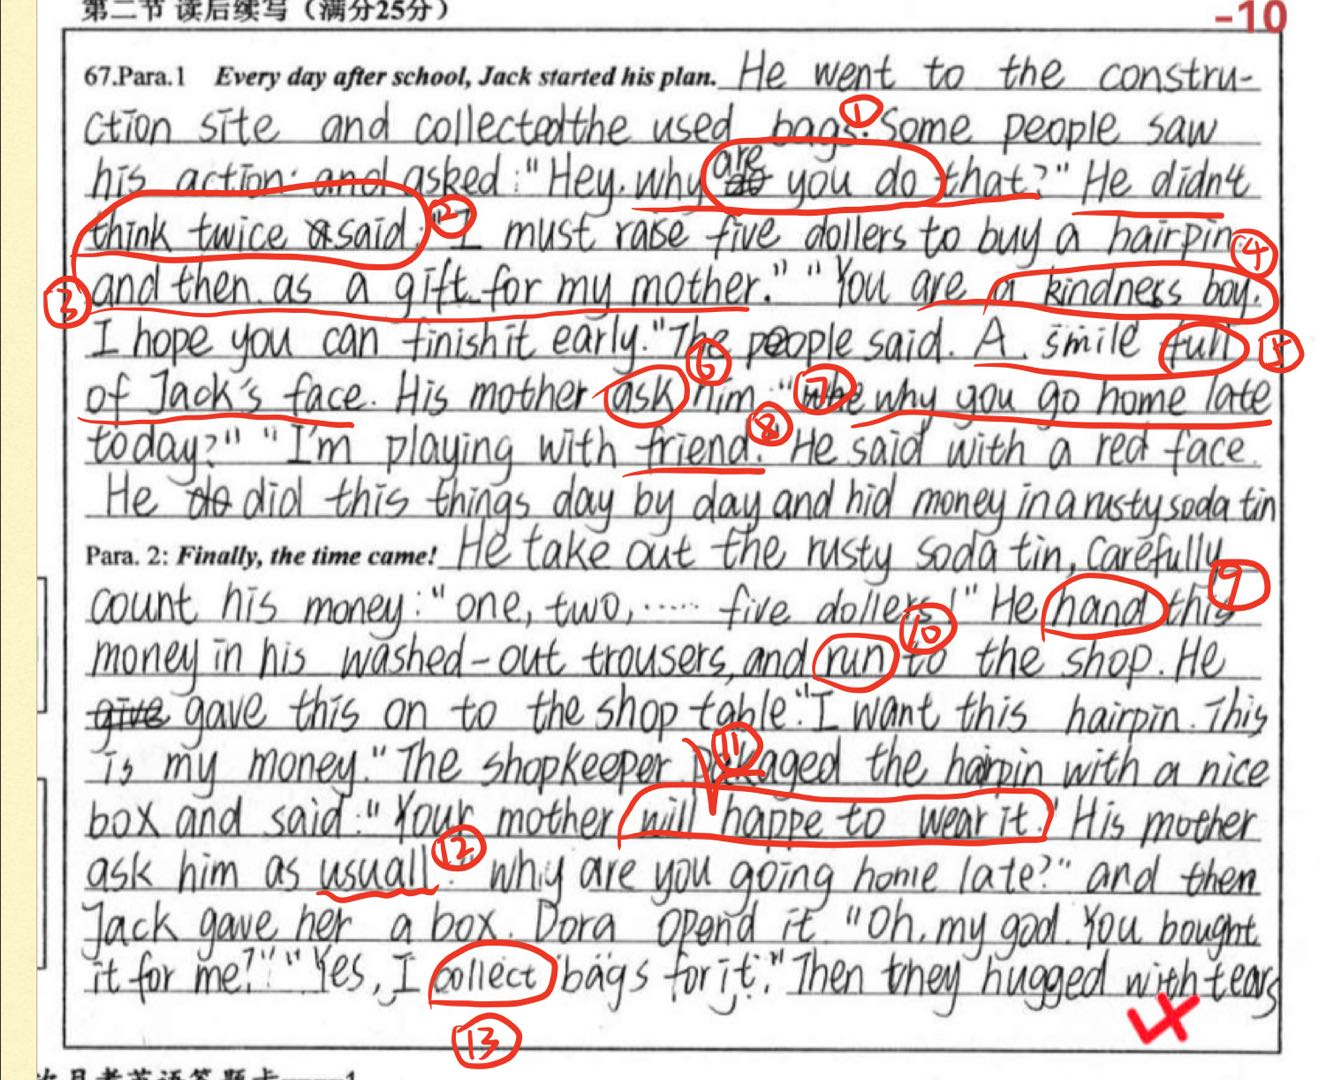 第二节 读后续写（满分25分）
-10
67.Para.1 Every day after school, Jack started his plan. He went to the constru-
ction site and collected the used bags. Some people saw
①
his action and asked: "Hey, why are you do that?" He didn't
think twice said: "I must raise five dollers to buy a hairpin
② ④
③ and then as a gift for my mother." "You are a kindness boy.
I hope you can finish it early." The people said. A smile full
⑤
of Jack's face. His mother ask him: " why you go home late
⑥ ⑦
today?" "I'm playing with friend." He said with a red face.
⑧
He do did this things day by day and hid money in a rusty soda tin
Para. 2: Finally, the time came! He take out the rusty soda tin, carefully
count his money: "one, two, ...... five dollers!" He hand this
⑨
money in his washed-out trousers, and run to the shop. He
⑩
give gave this on to the shop table. "I want this hairpin. This
is my money." The shopkeeper pakaged the hairpin with a nice
⑪
box and said: "Your mother will happe to wear it." His mother
ask him as usuall: "why are you going home late?" and then
⑫
Jack gave her a box. Dora opend it "Oh, my god. You bought
it for me?" "Yes, I collect bags for it." Then they hugged with tears
⑬